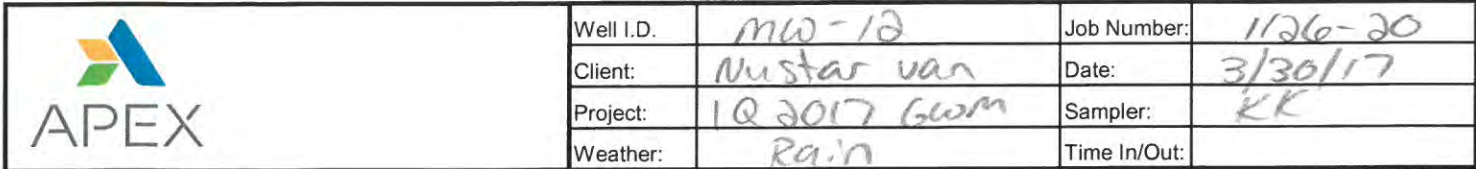 Well I.D. MW-12 Job Number: 1126-20
Client: Nustar van Date: 3/30/17
Project: 1Q 2017 GWM Sampler: KK
Weather: Rain Time In/Out:
APEX